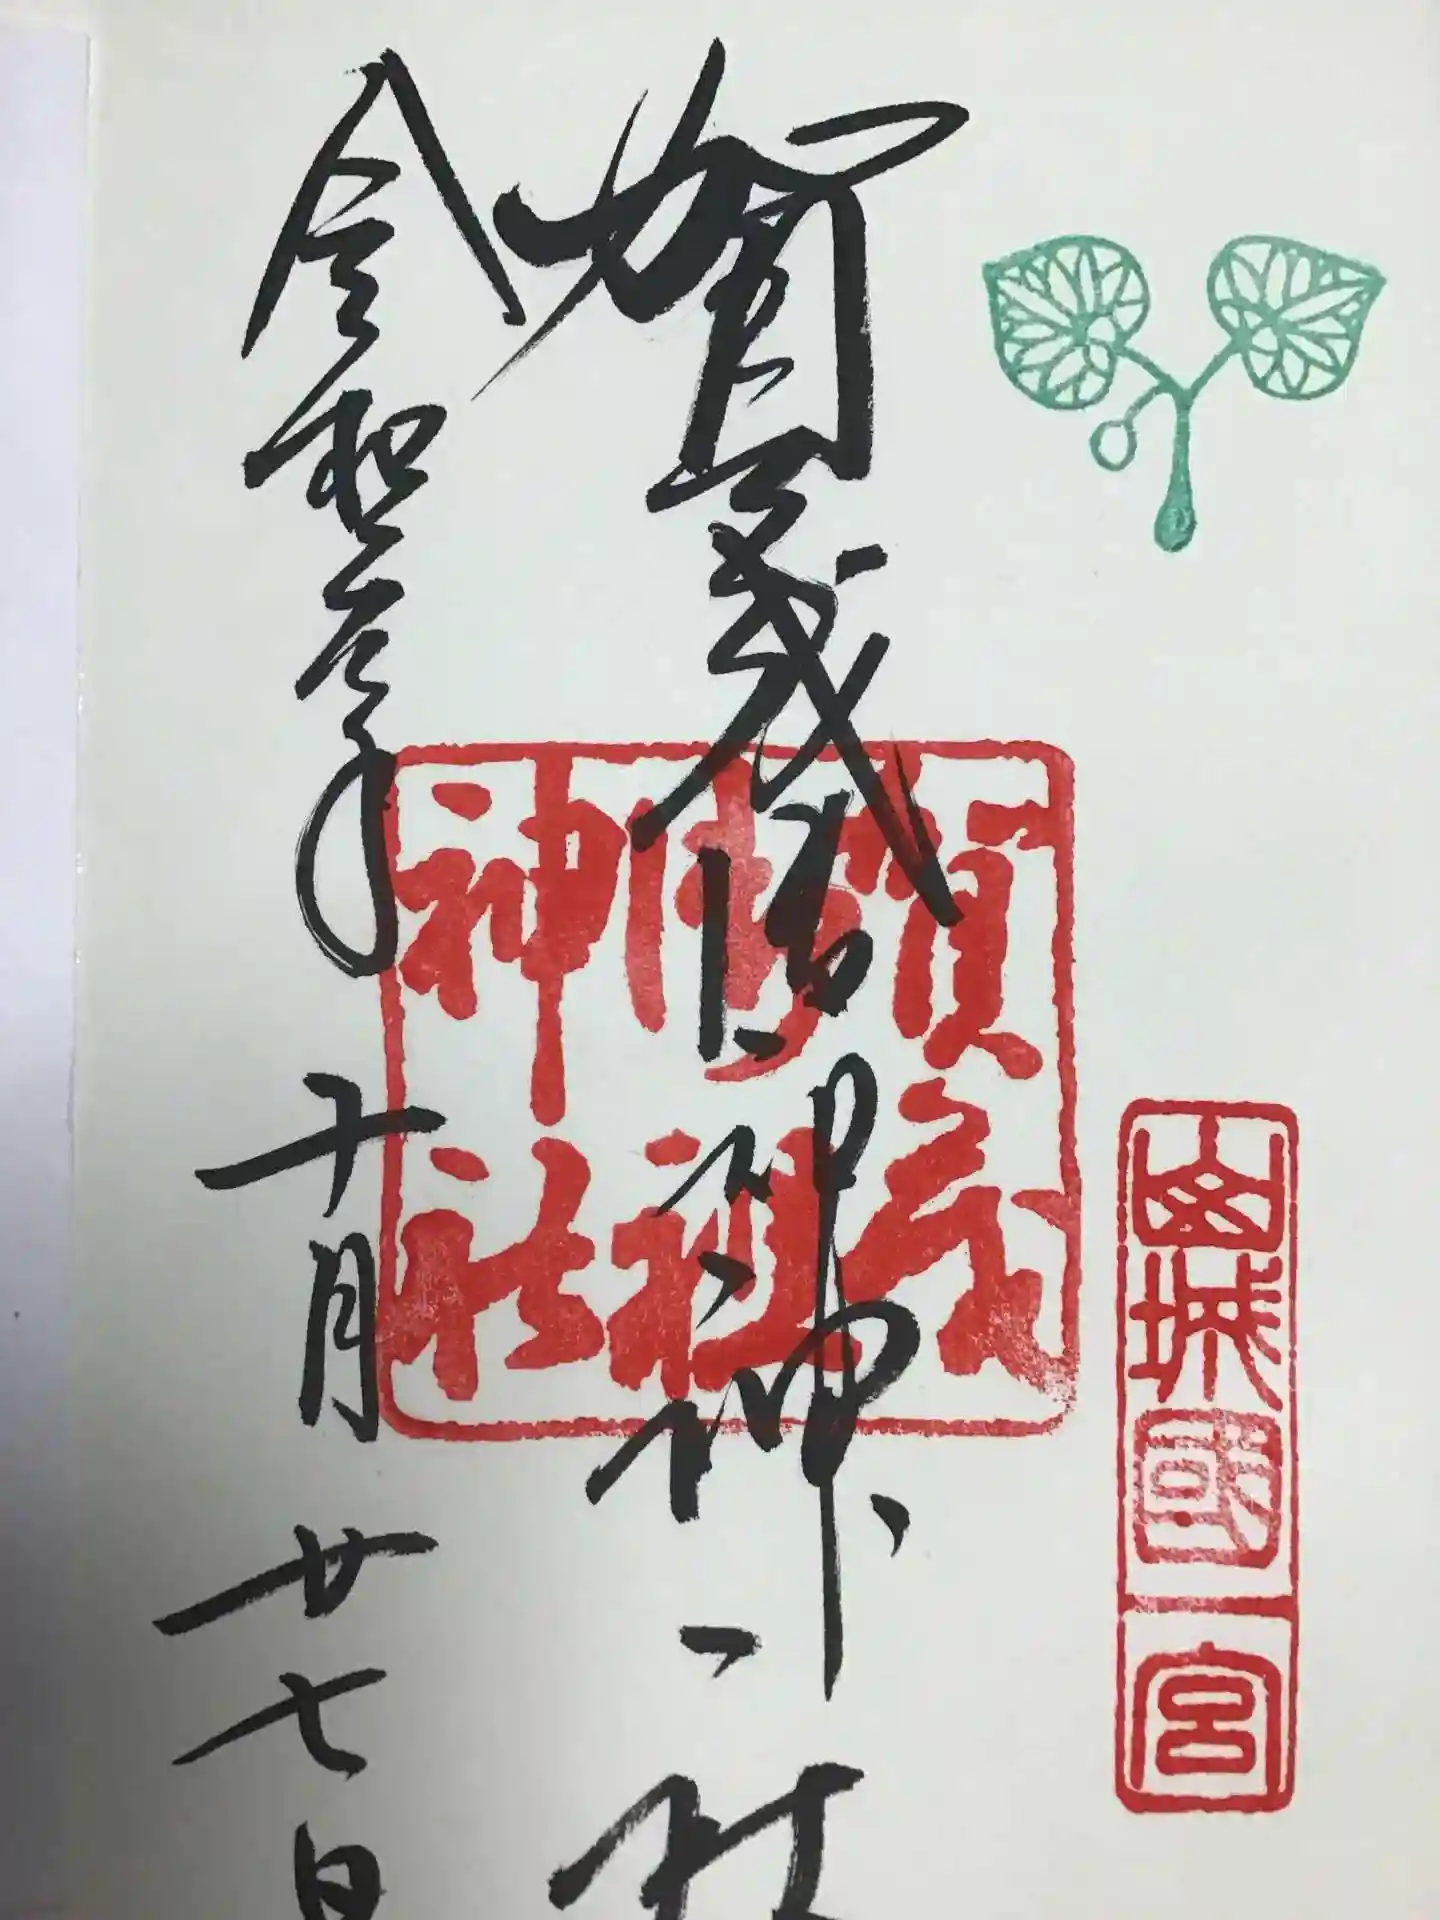 山城國一宮
賀茂御祖神社
賀茂御祖神社
令和三年十月廿七日